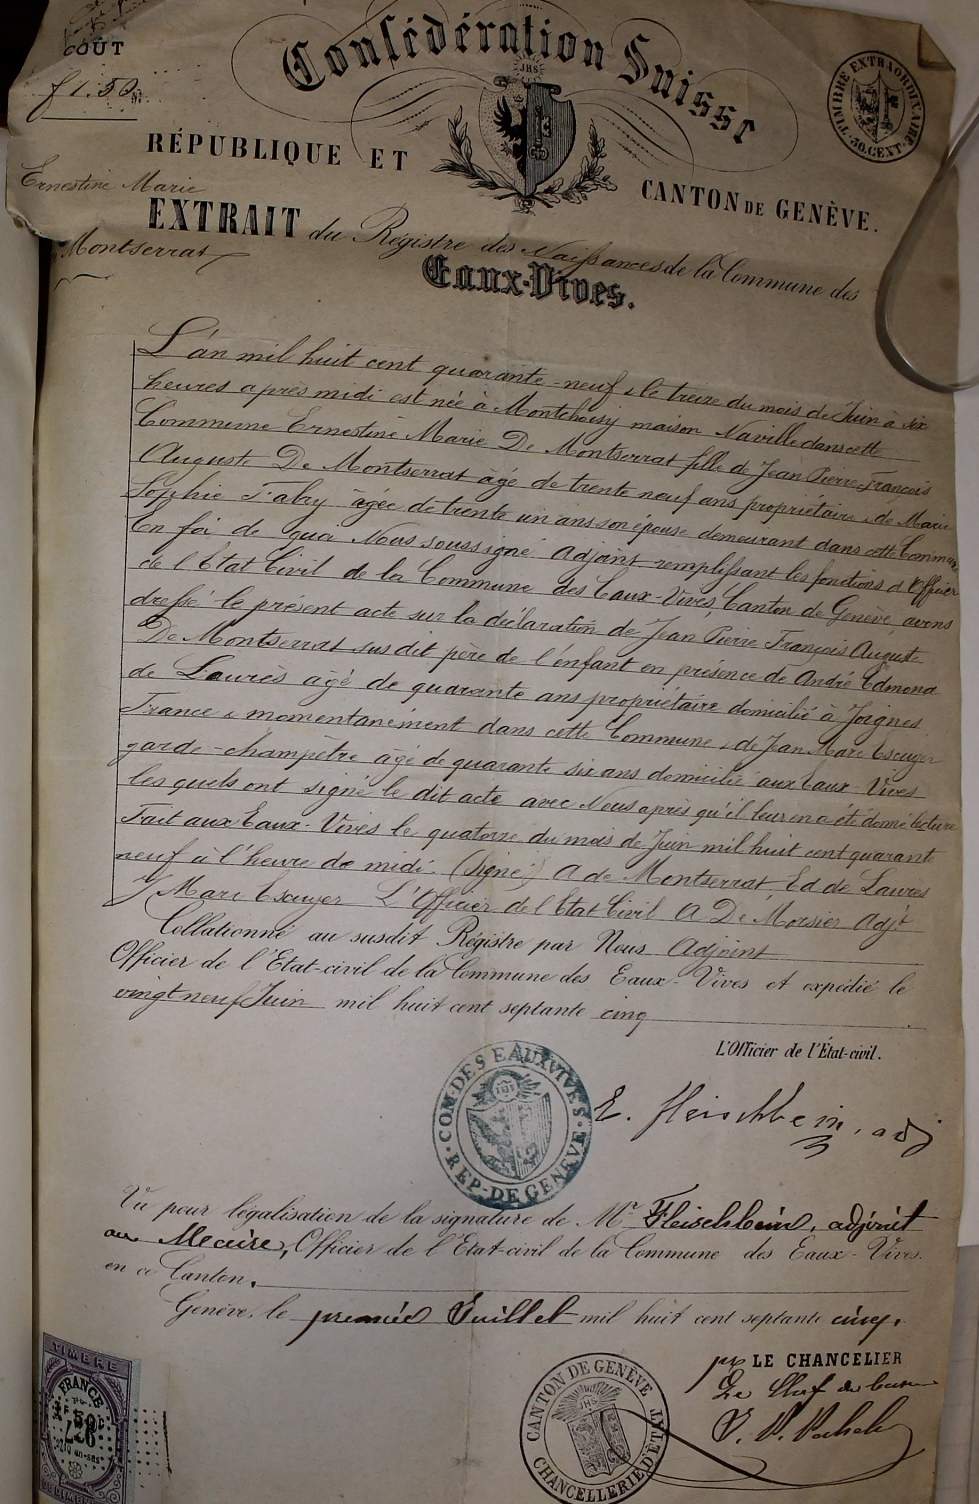 COÛT
f 1.50
Confédération Suisse
JHS
TIMBRE EXTRAORDINAIRE
50. CENT.
RÉPUBLIQUE ET CANTON DE GENÈVE.
Ernestine Marie
Montserrat
EXTRAIT du Régistre des Naissances de la Commune des
Eaux-Vives.
L'an mil huit cent quarante-neuf & le treize du mois de Juin à six
heures après midi est née à Montchoisy maison Naville dans cette
Commune Ernestine Marie De Montserrat fille de Jean Pierre François
Auguste De Montserrat âgé de trente neuf ans propriétaire & de Marie
Sophie Fabry âgée de trente un ans son épouse demeurant dans cette Commune
En foi de quoi Nous soussigné Adjoint remplissant les fonctions d'Officier
de l'État Civil de la Commune des Eaux-Vives, Canton de Genève, avons
dressé le présent acte sur la déclaration de Jean Pierre François Auguste
De Montserrat sus dit père de l'enfant en présence de André Edmond
de Laurès âgé de quarante ans propriétaire domicilié à Joignes
France & momentanément dans cette Commune & de Jean Marc Escuyer
garde-champêtre âgé de quarante six ans domicilié aux Eaux-Vives
les quels ont signé le dit acte avec Nous après qu'il leur en a été donné lecture
Fait aux Eaux-Vives le quatorze du mois de Juin mil huit cent quarante
neuf à l'heure de midi. (signé) A de Montserrat, Ed de Laures
J Marc Escuyer L'Officier de l'Etat Civil A De Morsier Adjt
Collationné au susdit Régistre par Nous Adjoint
Officier de l'Etat-civil de la Commune des Eaux-Vives et expédié le
vingt neuf Juin mil huit cent septante cinq
L'Officier de l'État-civil.
COM. DES EAUX VIVES
REP. DE GENÈVE
E. Fleischbein, adj
Vu pour légalisation de la signature de Mr Fleischbein, adjoint
au Maire, Officier de l'Etat-civil de la Commune des Eaux-Vives.
en ce Canton.
Genève, le premier Juillet mil huit cent septante cinq.
pr LE CHANCELIER
Le Chef de bureau
CANTON DE GENÈVE
JHS
CHANCELLERIE D'ÉTAT
TIMBRE
FRANCE